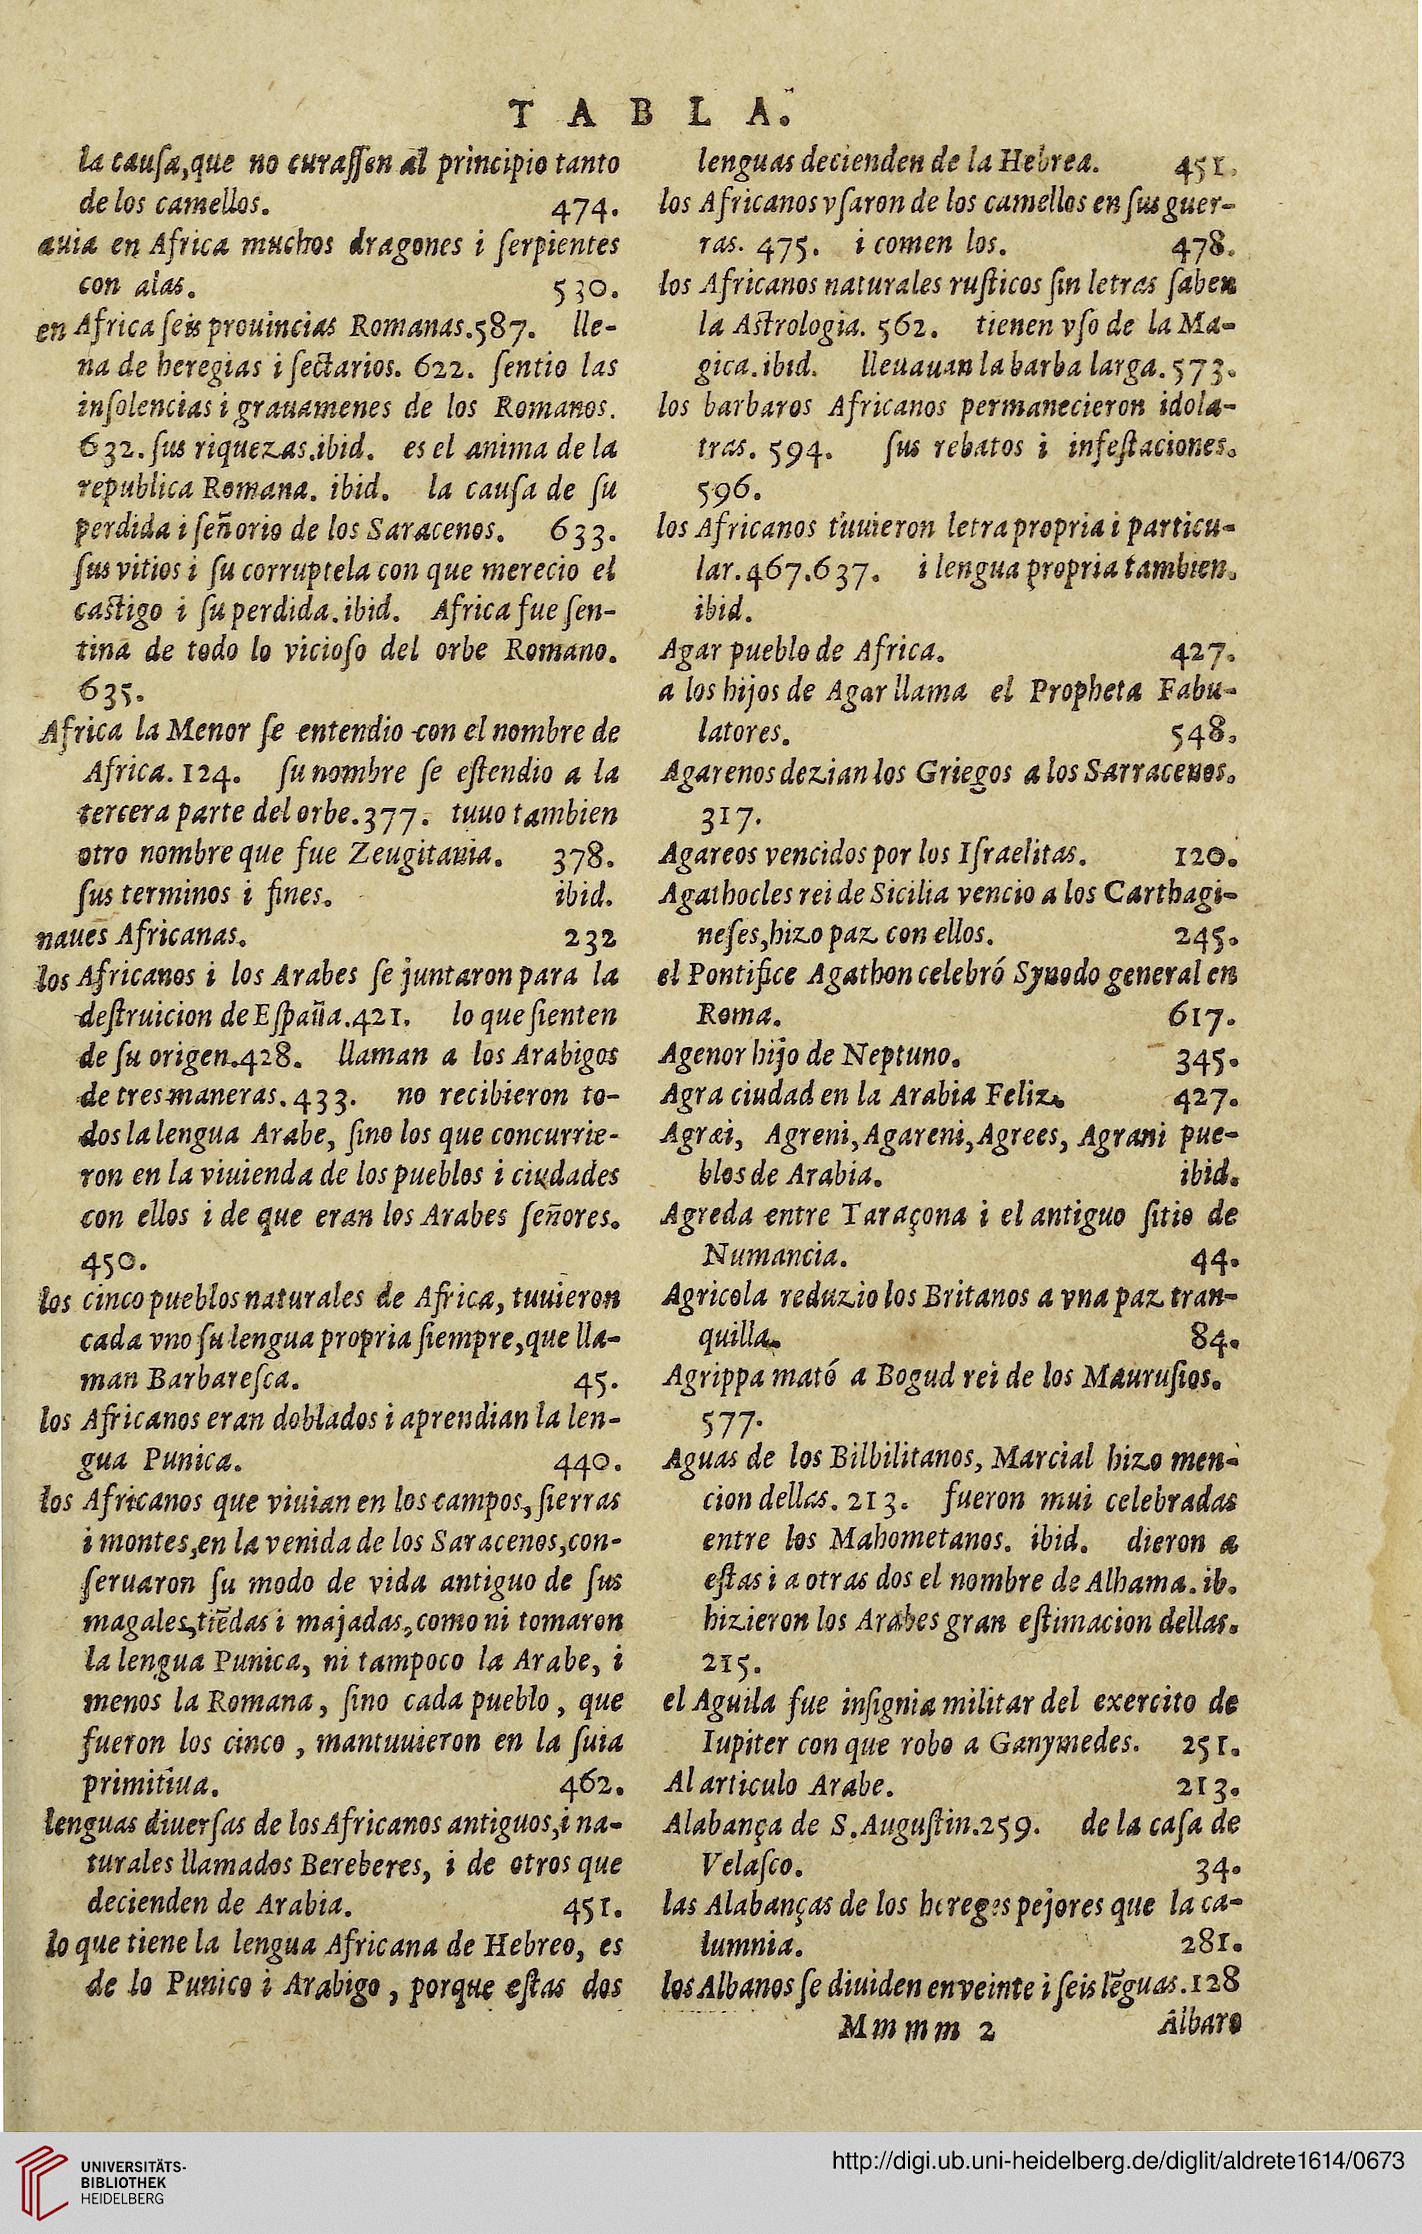 TABLA.
la cauſa,que no curaſſen al principio tanto
de los camellos. 474.
auia en Africa muchos dragones i ſerpientes
con alas. 530.
en Africa ſeis prouincias Romanas.587. lle-
na de heregias i ſectarios. 622. ſentio las
inſolencias i grauamenes de los Romanos.
632. ſus riquezas.ibid. es el anima de la
republica Romana. ibid. la cauſa de ſu
perdida i ſeñorio de los Saracenos. 633.
ſus vitios i ſu corruptela con que merecio el
caſtigo i ſu perdida.ibid. Africa fue ſen-
tina de todo lo vicioſo del orbe Romano.
635.
Africa la Menor ſe entendio con el nombre de
Africa. 124. ſu nombre ſe eſtendio a la
tercera parte del orbe.377. tuuo tambien
otro nombre que fue Zeugitania. 378.
ſus terminos i fines. ibid.
naues Africanas. 232
los Africanos i los Arabes ſe juntaron para la
deſtruicion de Eſpaña.421. lo que ſienten
de ſu origen.428. llaman a los Arabigos
de tres maneras. 433. no recibieron to-
dos la lengua Arabe, ſino los que concurrie-
ron en la viuienda de los pueblos i ciudades
con ellos i de que eran los Arabes ſeñores.
450.
los cinco pueblos naturales de Africa, tuuieron
cada vno ſu lengua propria ſiempre,que lla-
man Barbareſca. 45.
los Africanos eran doblados i aprendian la len-
gua Punica. 440.
los Africanos que viuian en los campos, ſierras
i montes,en la venida de los Saracenos,con-
ſeruaron ſu modo de vida antiguo de ſus
magales,tiẽdas i majadas,como ni tomaron
la lengua Punica, ni tampoco la Arabe, i
menos la Romana, ſino cada pueblo, que
fueron los cinco, mantuuieron en la ſuia
primitiua. 462.
lenguas diuerſas de los Africanos antiguos,i na-
turales llamados Bereberes, i de otros que
decienden de Arabia. 451.
lo que tiene la lengua Africana de Hebreo, es
de lo Punico i Arabigo, porque eſtas dos
lenguas decienden de la Hebrea. 451.
los Africanos vſaron de los camellos en ſus guer-
ras. 475. i comen los. 478.
los Africanos naturales ruſticos ſin letras ſaben
la Aſtrologia. 562. tienen vſo de la Ma-
gica.ibid. lleuauan la barba larga.573.
los barbaros Africanos permanecieron idola-
tras. 594. ſus rebatos i infeſtaciones.
596.
los Africanos tuuieron letra propria i particu-
lar.467.637. i lengua propria tambien.
ibid.
Agar pueblo de Africa. 427.
a los hijos de Agar llama el Propheta Fabu-
latores. 548.
Agarenos dezian los Griegos a los Sarracenos.
317.
Agareos vencidos por los Iſraelitas. 120.
Agathocles rei de Sicilia vencio a los Carthagi-
neſes,hizo paz con ellos. 245.
el Pontifice Agathon celebró Synodo general en
Roma. 617.
Agenor hijo de Neptuno. 345.
Agra ciudad en la Arabia Feliz. 427.
Agræi, Agreni,Agareni,Agrees, Agrani pue-
blos de Arabia. ibid.
Agreda entre Taraçona i el antiguo ſitio de
Numancia. 44.
Agricola reduzio los Britanos a vna paz tran-
quilla. 84.
Agrippa mató a Bogud rei de los Mauruſios.
577.
Aguas de los Bilbilitanos, Marcial hizo men-
cion dellas. 213. fueron mui celebradas
entre los Mahometanos. ibid. dieron a
eſtas i a otras dos el nombre de Alhama. ib.
hizieron los Arabes gran eſtimacion dellas.
215.
el Aguila fue inſignia militar del exercito de
Iupiter con que robo a Ganymedes. 251.
Al articulo Arabe. 213.
Alabança de S. Auguſtin.259. de la caſa de
Velaſco. 34.
las Alabanças de los hereges pejores que la ca-
lumnia. 281.
los Albanos ſe diuiden en veinte i ſeis lẽguas.128
Mmmm 2 Albaro
UNIVERSITÄTS-
BIBLIOTHEK
HEIDELBERG
http://digi.ub.uni-heidelberg.de/diglit/aldrete1614/0673